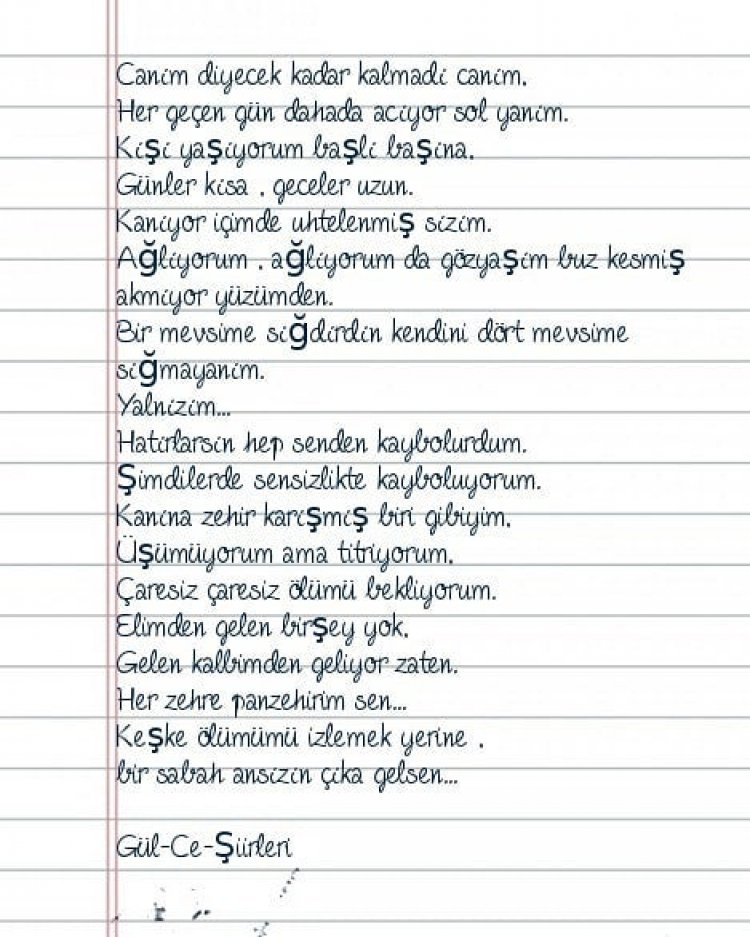 Canım diyecek kadar kalmadı canım.
Her geçen gün dahada acıyor sol yanım.
Kışı yaşıyorum başlı başına.
Günler kısa , geceler uzun.
Kanıyor içimde uhtelenmiş sızım.
Ağlıyorum , ağlıyorum da gözyaşım buz kesmiş
akmıyor yüzümden.
Bir mevsime sığdırdın kendini dört mevsime
sığmayanım.
Yalnızım...
Hatırlarsın hep senden kaybolurdum.
Şimdilerde sensizlikte kayboluyorum.
Kanına zehir karışmış biri gibiyim.
Üşümüyorum ama titriyorum.
Çaresiz çaresiz ölümü bekliyorum.
Elimden gelen birşey yok.
Gelen kalbimden geliyor zaten.
Her zehre panzehirim sen...
Keşke ölümümü izlemek yerine ,
bir sabah ansızın çıka gelsen...
Gül-Ce-Şiirleri